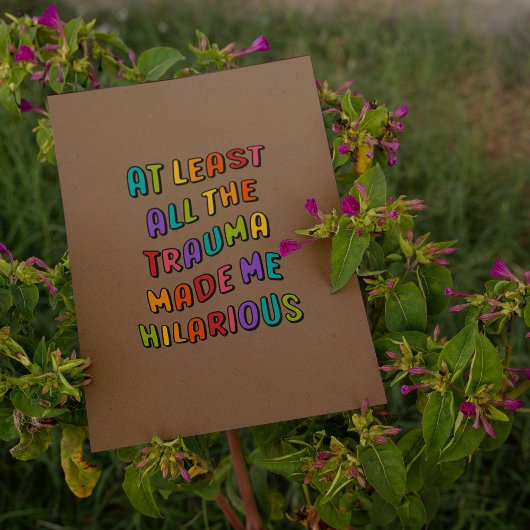 AT LEAST
ALL THE
TRAUMA
MADE ME
HILARIOUS